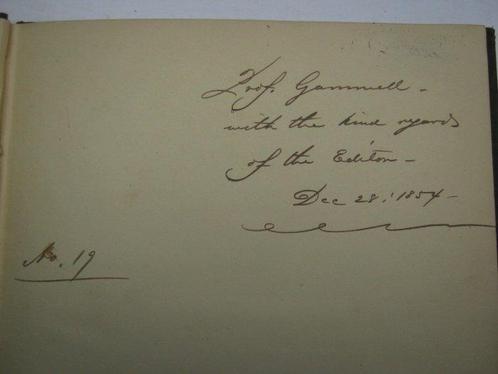 Prof. Gammell -
with the kind regards
of the Editor -
Dec 28: 1854 -
No. 19